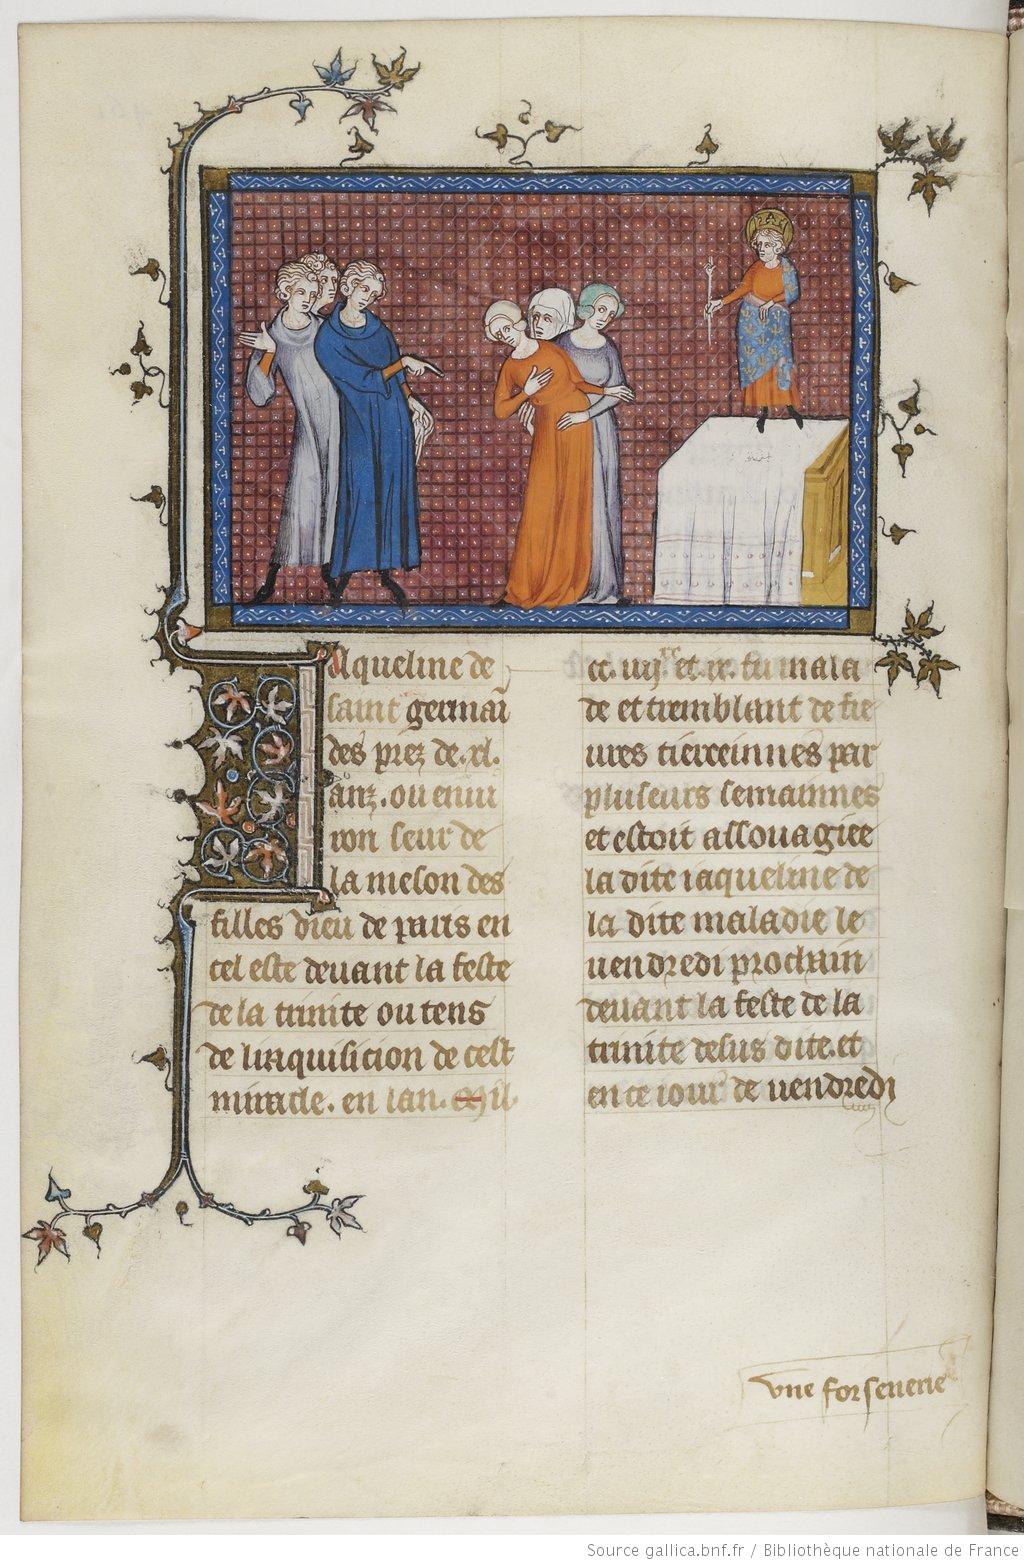 Jaqueline de
saint germaī
des prez de .xl.
anz. ou enui
ron seur de
la meson des
filles dieu de paris en
cel este deuant la feste
de la trinite ou tens
de linquisicion de cest
miracle. en lan. Mil.
cc. iiijˣˣ et ij. fu mala
de et tremblant de fie
ures tierceinnes par
pluseurs semainnes
et estoit assouagiee
la dite iaqueline de
la dite maladie le
uendredi prochain
deuant la feste de la
trinite desus dite. et
en ce iour de uendredi
vne forsenerie
Source gallica.bnf.fr / Bibliothèque nationale de France